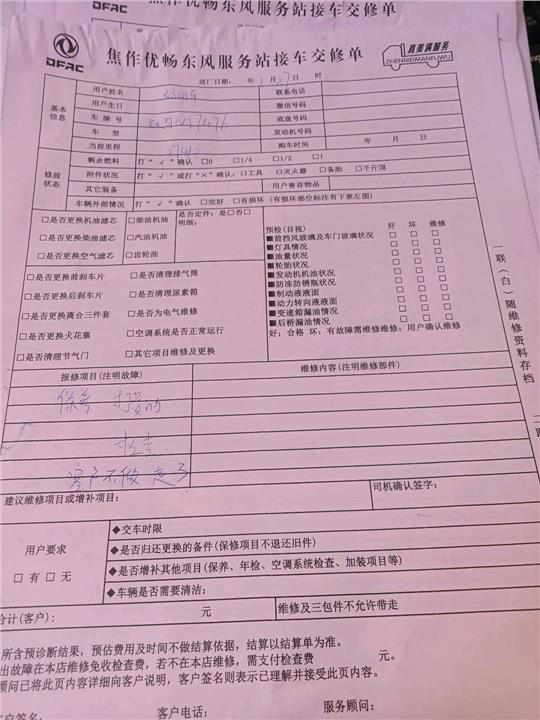 DFAC
焦作优畅东风服务站接车交修单
真美满服务
ZHENMEIMANFUWU
进厂日期: 年 1 月 27 日 时
基本信息
用户姓名
联系电话
用户生日
微信号码
车 牌 号
底盘号码
车 型
发动机号码
当前里程
购车时间 年 月 日
修前状态
剩余燃料 打“√”确认 □0 □1/4 □1/2 □1
附件状况 打“√”或打“×”确认:□工具 □灭火器 □备胎 □千斤顶
其它装备
用户寄存物品
车辆外部情况 打“√”确认 □完好 □有损坏 (有损坏部位标注有下表左图)
□是否更换机油滤芯 □柴油机油
□是否更换柴油滤芯 □汽油机油
□是否更换空气滤芯 □齿轮油
是否定件: 是□否□
明细:
□是否更换前刹车片 □是否清理排气筒
□是否更换后刹车片 □是否清理尿素箱
□是否更换离合三件套 □是否为电气维修
□是否更换火花塞 □空调系统是否正常运行
□是否清理节气门 □其它项目维修及更换
预检(目视) 好 坏 维修
■前挡风玻璃及车门玻璃状况 □ □ □
■灯具情况 □ □ □
■油量状况 □ □ □
■轮胎状况 □ □ □
■发动机机油状况 □ □ □
■防冻防锈瓶状况 □ □ □
■制动液液面 □ □ □
■动力转向液液面 □ □ □
■变速箱漏油情况 □ □ □
■后桥漏油情况 □ □ □
好: 合格 坏: 有故障需维修维修: 用户确认维修
一联(白)随维修资料存档
报修项目(注明故障)
维修内容(注明维修部件)
保养
检查
客户不做 走了
建议维修项目或增补项目:
司机确认签字:
用户要求
□ 有 □ 无
◆交车时限
◆是否归还更换的备件(保修项目不退还旧件)
◆是否增补其他项目(保养、年检、空调系统检查、加装项目等)
◆车辆是否需要清洁:
合计(客户): 元
维修及三包件不允许带走
所含预诊断结果, 预估费用及时间不做结算依据, 结算以结算单为准。
出故障在本店维修免收检查费, 若不在本店维修, 需支付检查费 元。
顾问已将此页内容详细向客户说明, 客户签名则表示已理解并接受此页内容。
客户签名:
客户电话:
服务顾问: